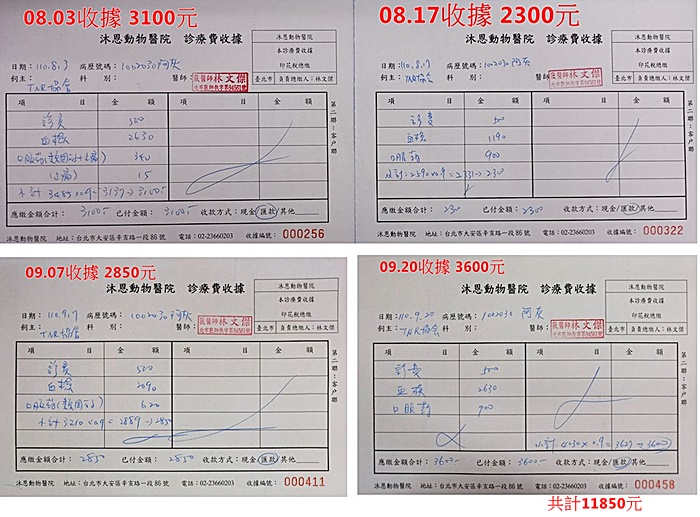 08.03收據 3100元
沐恩動物醫院 診療費收據
沐恩動物醫院
本診療費收據
印花稅總繳
臺北市 負責總繳人:林文傑
日期: 110.8.3 病歷號碼: 1002030阿灰
飼主: TNR協會 科別: 醫師: 獸醫師林文傑
項目 金額 項目 金額
診費 500
血檢 2630
口服藥 340
15
小計 3485×0.9=3137→3100
應繳金額合計: 3100 已付金額: 3100 收款方式:現金/匯款/其他
沐恩動物醫院 地址:台北市大安區辛亥路一段86號 電話:02-23660203 收據編號: 000256
第二聯:客戶聯
08.17收據 2300元
沐恩動物醫院 診療費收據
沐恩動物醫院
本診療費收據
印花稅總繳
臺北市 負責總繳人:林文傑
日期: 110.8.17 病歷號碼: 1002030 阿灰
飼主: TNR協會 科別: 醫師: 獸醫師林文傑
項目 金額 項目 金額
診費 500
血檢 1190
口服藥 900
小計:2590×0.9=2331→2300
應繳金額合計: 2300 已付金額: 2300 收款方式:現金/匯款/其他
沐恩動物醫院 地址:台北市大安區辛亥路一段86號 電話:02-23660203 收據編號: 000322
第二聯:客戶聯
09.07收據 2850元
沐恩動物醫院 診療費收據
沐恩動物醫院
本診療費收據
印花稅總繳
臺北市 負責總繳人:林文傑
日期: 110.9.7 病歷號碼: 1002030阿灰
飼主: TNR協會 科別: 醫師: 獸醫師林文傑
項目 金額 項目 金額
診費 500
血檢 2090
口服藥 620
小計 3210×0.9=2889→2850
應繳金額合計: 2850 已付金額: 2850 收款方式:現金/匯款/其他
沐恩動物醫院 地址:台北市大安區辛亥路一段86號 電話:02-23660203 收據編號: 000411
第二聯:客戶聯
09.20收據 3600元
沐恩動物醫院 診療費收據
沐恩動物醫院
本診療費收據
印花稅總繳
臺北市 負責總繳人:林文傑
日期: 110.9.20 病歷號碼: 1002030 阿灰
飼主: TNR協會 科別: 醫師: 獸醫師林文傑
項目 金額 項目 金額
診費 500
血檢 2630
口服藥 900
小計:4030×0.9=3627→3600
應繳金額合計: 3600 已付金額: 3600 收款方式:現金/匯款/其他
沐恩動物醫院 地址:台北市大安區辛亥路一段86號 電話:02-23660203 收據編號: 000458
第二聯:客戶聯
共計11850元